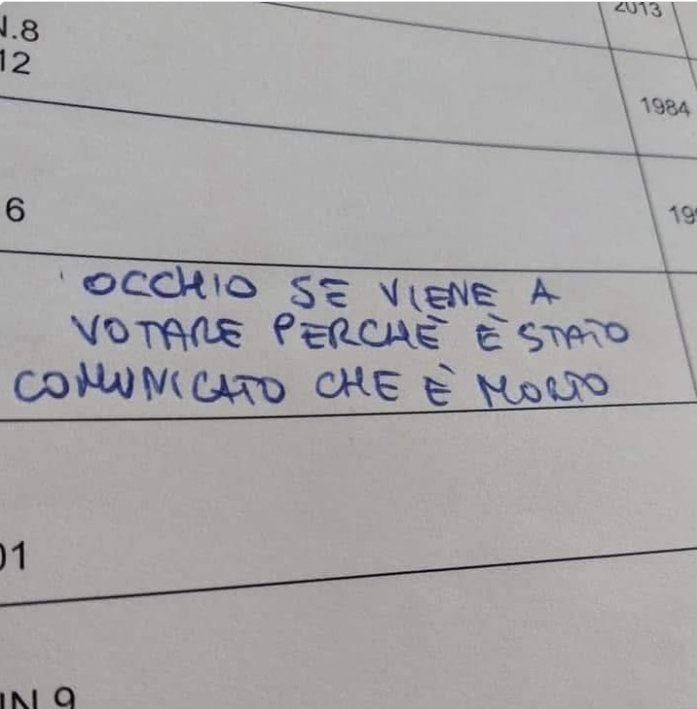 N.8
2013
12
1984
6
19
OCCHIO SE VIENE A
VOTARE PERCHÈ È STATO
COMUNICATO CHE È MORTO
01
IN 9